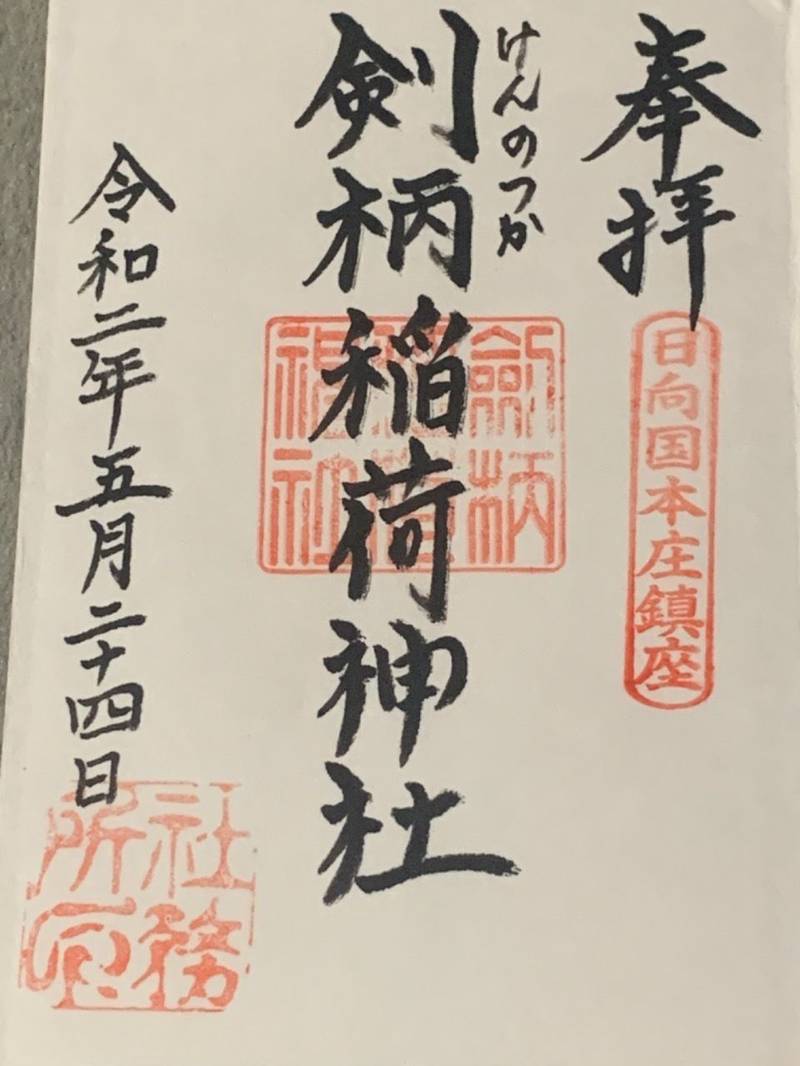 奉拝
日向国本庄鎮座
けんのつか
剣柄稲荷神社
劍柄稲荷神社
令和二年五月二十四日
社務所印